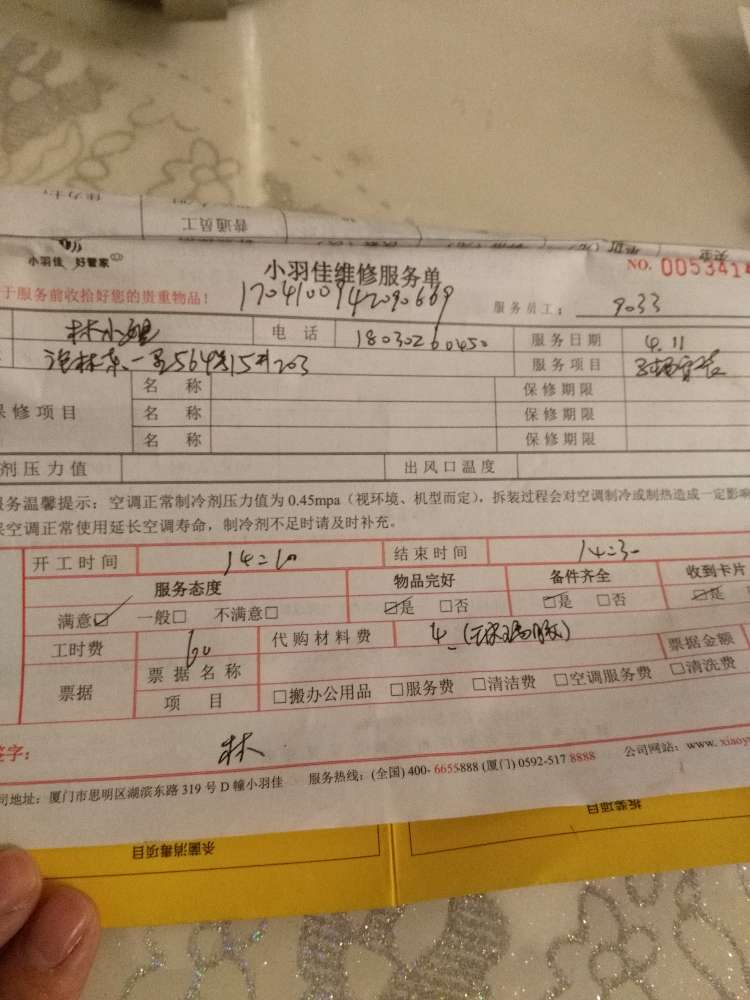 普通员工
小羽佳 好管家
小羽佳维修服务单
NO. 0053414
于服务前收拾好您的贵重物品！
17041009142090669
服务员工： 9033
林小姐 电话 18030260450 服务日期 4.11
服务项目
名称 保修期限
保修项目 名称 保修期限
名称 保修期限
剂压力值 出风口温度
服务温馨提示：空调正常制冷剂压力值为 0.45mpa（视环境、机型而定），拆装过程会对空调制冷或制热造成一定影响
空调正常使用延长空调寿命，制冷剂不足时请及时补充。
开工时间 14:10 结束时间 14:30
服务态度 物品完好 备件齐全 收到卡片
满意☑ 一般□ 不满意□ ☑是 □否 ☑是 □否 ☑是
工时费 60 代购材料费 4.(玻璃胶) 票据金额
票据 票据名称
项目 □搬办公用品 □服务费 □清洁费 □空调服务费 □清洗费
签字： 林
司地址：厦门市思明区湖滨东路 319 号 D 幢小羽佳 服务热线：(全国) 400- 6655888 (厦门) 0592-517 8888 公司网站：www. xiaoy
杀菌消毒项目
拆装项目